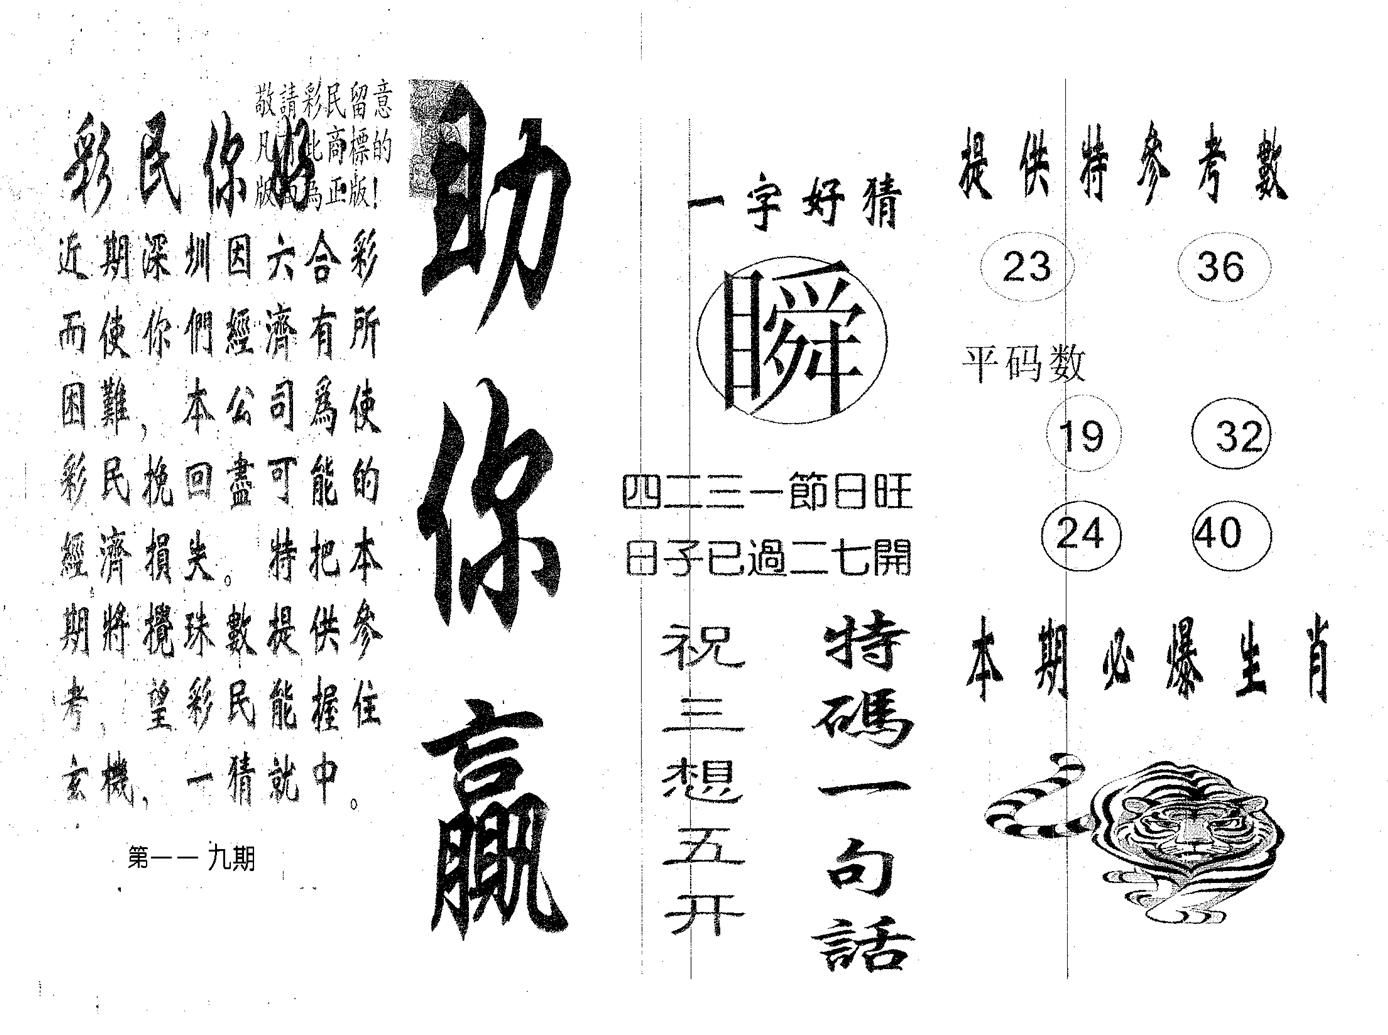 敬請彩民留意
凡有此商標的
版面為正版!
彩民你好
近期深圳因六合彩
而使你們經濟有所
困難，本公司爲使
彩民挽回盡可能的
經濟損失。特把本
期將攪珠數提供參
考，望彩民能握住
玄機，一猜就中。
第一一九期
助你贏
一字好猜
瞬
四二三一節日旺
日子已過二七開
特碼一句話
祝三想五开
提供特參考數
23 36
平码数
19 32
24 40
本期必爆生肖